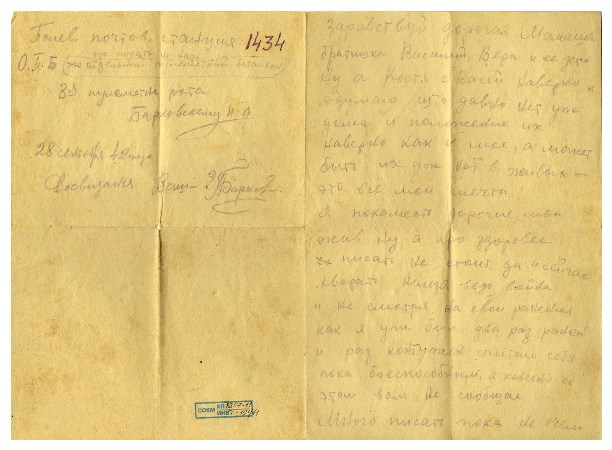 Полев. почтов. станция 1434
О.П.Б (это писать не надо
отдельный пулеметный батальон)
3-я пулеметн рота
Барковскому
28 сентября 42 года
Досвидания Ваш Барков
Здравствуй дорогая Мамаша
братишка Василий, Вера и ее дети
Ну а Костя с Васей наверно
я думаю что давно нет уж
дома и положение их
наверно как и мое, а может
быть их уж нет в живых —
это все мои мечта.
Я покаместь дорогие мои
жив Ну, а про здоровье
писать не стоит да и сейчас
нельзя ведь война
и не смотря на свои ранения
как я уж был два раз ранен
и раз контужен считаю себя
пока боеспособным, я конечно об
этом вам не сообщал
Много писать пока не
СОКМ КП
ИНВ